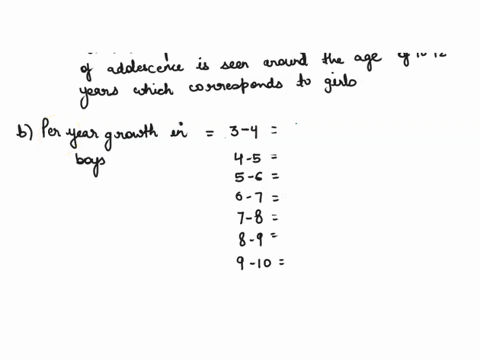 of adolescence is seen around the age of 10-12
years which corresponds to girls
b) Per year growth in = 3-4 =
boys
4-5 =
5-6 =
6-7 =
7-8 =
8-9 =
9-10 =